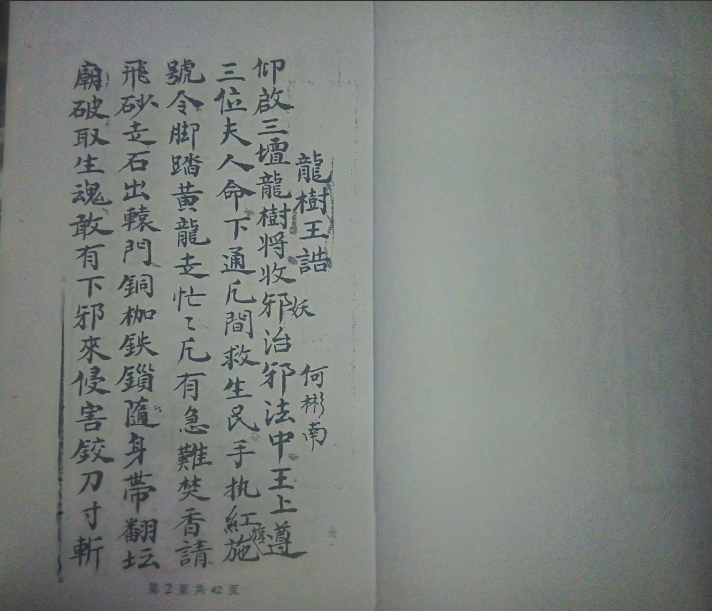 龍樹王誥
何彬南
仰啟三壇龍樹將收邪治邪法中王上遵
妖
三位夫人命下通凡間救生民手执紅施
旗
號令脚踏黄龍走忙々凡有急難焚香請
飛砂走石出轅門銅枷鉄鎖隨身帶翻坛
廟破取生魂敢有下邪來侵害鉸刀寸斬
第2页共42页